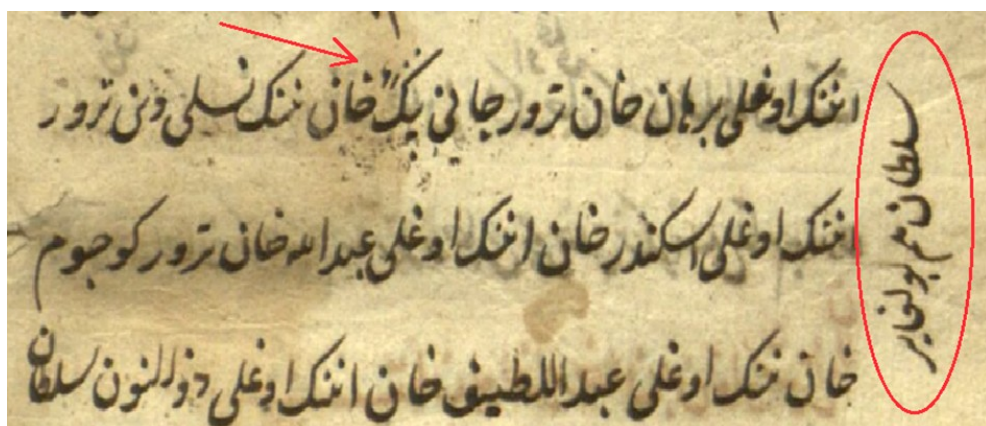 اننک اوغلی برهان خان ترور جانی بیک خان ننک نسلی دن ترور
اننک اوغلی اسکندر خان اننک اوغلی عبدالله خان ترور کوجوم
خان ننک اوغلی عبداللطیف خان اننک اوغلی ذوالنون سلطان
سلطان هم بو